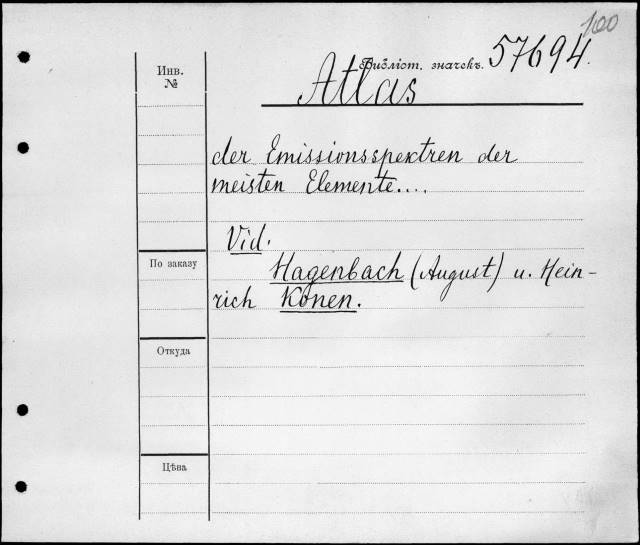 100
Библіот. значекъ. 57694.
Инв.
№
Atlas
der Emissionsspektren der
meisten Elemente....
Vid.
По заказу
Hagenbach (August) u. Hein-
rich Konen.
Откуда
Цѣна